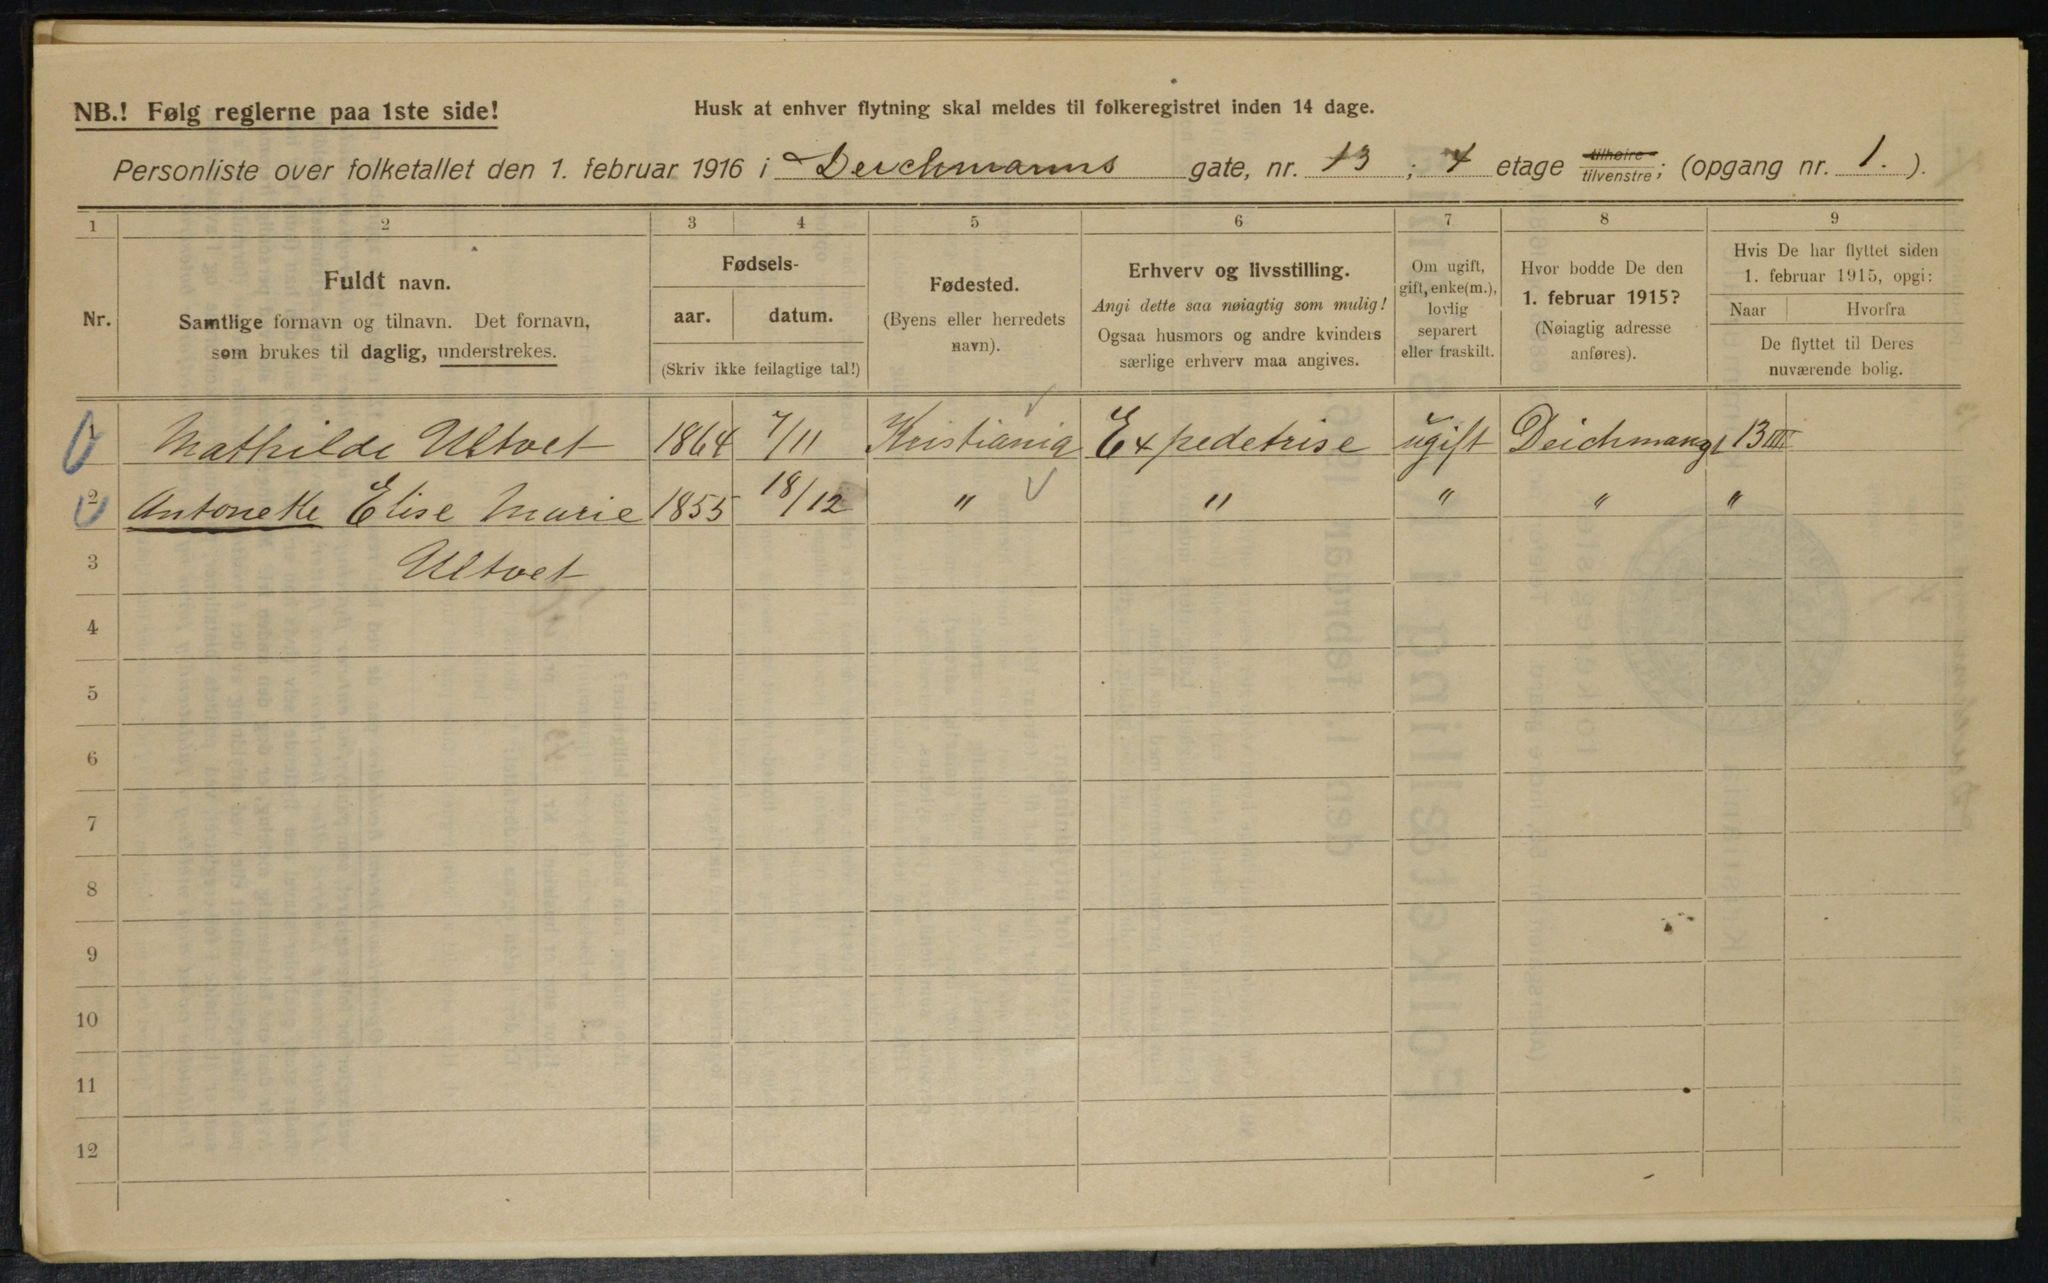 NB.! Følg reglerne paa 1ste side!
Husk at enhver flytning skal meldes til folkeregistret inden 14 dage.
Personliste over folketallet den 1. februar 1916 i Deichmanns gate, nr. 13 ; 4 etage tilhøire tilvenstre; (opgang nr. 1. ).
1 2 3 4 5 6 7 8 9
Nr.
Fuldt navn.
Samtlige fornavn og tilnavn. Det fornavn,
som brukes til daglig, understrekes.
Fødsels-
aar. datum.
(Skriv ikke feilagtige tal!)
Fødested.
(Byens eller herredets
navn).
Erhverv og livsstilling.
Angi dette saa nøiagtig som mulig!
Ogsaa husmors og andre kvinders
særlige erhverv maa angives.
Om ugift,
gift, enke(m.),
lovlig
separert
eller fraskilt.
Hvor bodde De den
1. februar 1915?
(Nøiagtig adresse
anføres).
Hvis De har flyttet siden
1. februar 1915, opgi:
Naar Hvorfra
De flyttet til Deres
nuværende bolig.
1 Mathilde Ultvet 1864 7/11 Kristiania Expedetrise ugift Deichmangt 13 III
2 Antonette Elise Marie 1855 18/12 " " " " "
3 Ultvet
4
5
6
7
8
9
10
11
12